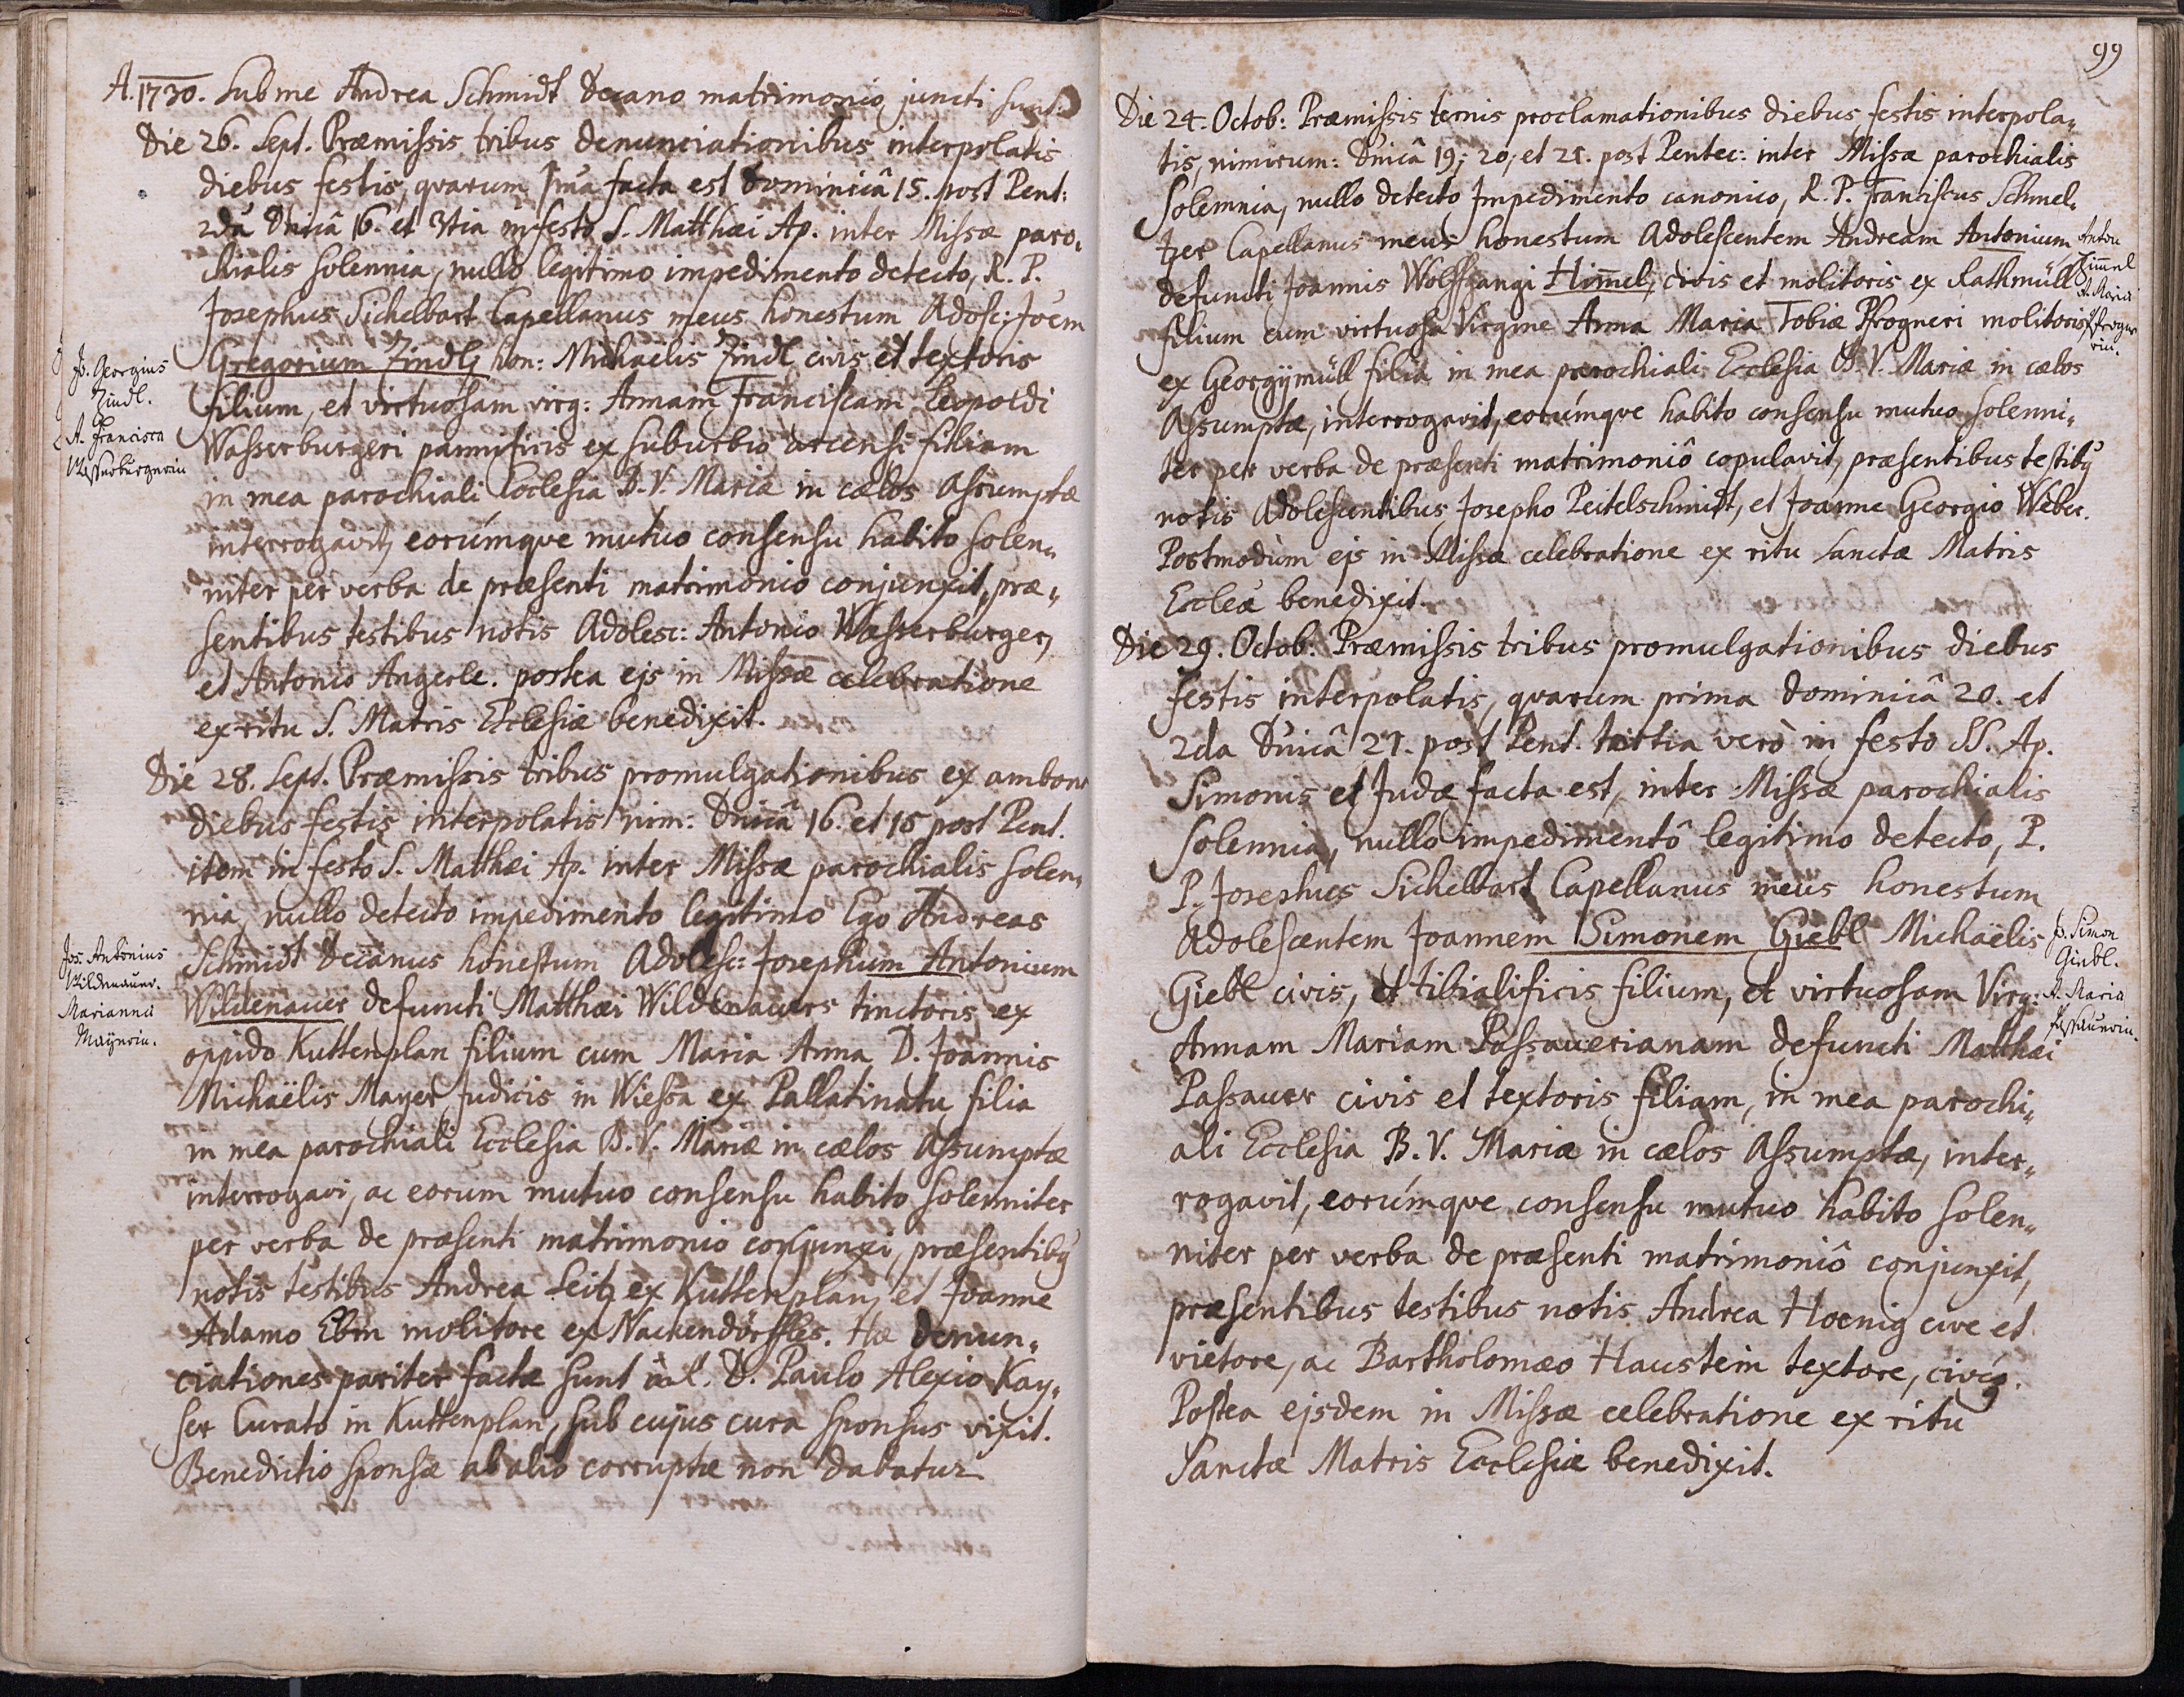 A. 1730. Sub me Andrea Schmidt Decano matrimonio juncti sunt:
Die 26. Sept. Præmissis tribus denunciationibus interpolatis
diebus festis, qvarum 1ma facta est Dominicâ 15. post Pent:
2da Dnicâ 16. et 3tia in festo S. Matthæi Ap. inter Missæ paro„
chialis solennia, nullo legitimo impedimento detecto, R. P.
Josephus Sichelbart Capellanus meus honestum Adolesc: Joem
Gregorium Zindl, hon: Michaëlis Zindl civis et textoris
Jo. Georgius
Zindl.
A. Francisca
Wasserburgerin
filium, et virtuosam virg: Annam Franciscam Leopoldi
Wasserburgeri pannificis ex suburbio arcensi filiam
in mea parochiali Ecclesia B. V. Mariæ in cælos Assumptæ
interrogavit, eorúmqve mutuo consensu habito solen„
niter per verba de præsenti matrimonio conjunxit, præ„
sentibus testibus notis Adolesc: Antonio Wasserburger,
et Antonio Angerle. postea ejs in Missæ celebratione
ex ritu S. Matris Ecclesiæ benedixit.
Die 28. Sept. Præmissis tribus promulgationibus ex ambone
diebus festis interpolatis nim: Dnicâ 16. et 15 post Pent.
item in festo S. Matthæi Ap. inter Missæ parochialis solen„
nia, nullo detecto impedimento legitimo Ego Andreas
Schmidt Decanus honestum Adolesc: Josephum Antonium
Jos. Antonius
Wildenauer.
Marianna
Mayerin.
Wildenauer defuncti Matthæi Wildenauers tinctoris ex
oppido Kuttenplan filium cum Maria Anna D. Joannis
Michaëlis Mayer Judicis in Wiessa ex Pallatinatu filia
in mea parochiali Ecclesia B. V. Mariæ in cælos Assumptæ
interrogavi, ac eorum mutuo consensu habito solenniter
per verba de præsenti matrimonio conjunxi, præsentibq
notis testibus Andrea Seitz ex Kuttenplan, et Joanne
Adamo Ebm molitore ex Nackendörffles. Hæ denun„
ciationes pariter factæ sunt à D. Paulo Alexio Kay„
ser Curato in Kuttenplan, sub cujus cura sponsus vixit.
Benedictio sponsæ ab alio corruptæ non dabatur
99
Die 24. Octob: Præmissis ternis proclamationibus diebus festis interpola„
tis, nimirum: Dnicâ 19; 20, et 21. post Pentec: inter Missæ parochialis
Solemnia, nullo detecto Impedimento canonico, R. P. Franciscus Schmel„
tzer Capellanus meus honestum Adolescentem Andream Antonium
Anton
Himmel
A. Maria
Pfrogner
rin.
defuncti Joannis Wolffgangi Him̄el, civis et molitoris ex Rathmüll
filium cum virtuosa Virgine Anna Maria Tobiæ Pfrogneri molitoris
ex Georgijmüll filia in mea parochiali Ecclesia B. V. Mariæ in cælos
Assumptæ, interrogavit, eorúmqve habito consensu mutuo solenni„
ter per verba de præsenti matrimoniô copulavit, præsentibus testibq
notis Adolescentibus, Josepho Peitelschmidt, et Joanne Georgio Weber.
Postmodùm ejs in Missæ celebratione ex ritu Sanctæ Matris
Eccleæ benedixit.
Die 29. Octob. Præmissis tribus promulgationibus diebus
festis interpolatis, qvarum prima Dominicâ 20. et
2da Dnicâ 21. post Pent. tertia verò in festo SS. Ap.
Simonis et Judæ facta est, inter Missæ parochialis
Solennia, nullo impedimentô legitimo detecto, P.
P. Josephus Sichelbart Capellanus meus honestum
Adolescentem Joannem Simonem Giebl Michaëlis
Jo. Simon
Giebl.
A. Maria
Passauerin.
Giebl civis, et tibialificis filium, et virtuosam Virg:
Annam Mariam Passauerianam defuncti Matthæi
Passauer civis et textoris filiam, in mea parochi„
ali Ecclesia B. V. Mariæ in cælos Assumptæ, inter„
rogavit, eorúmqve consensu mutuo habito solen„
niter per verba de præsenti matrimoniô conjunxit,
præsentibus testibus notis Andrea Hoenig cive et
vietore, ac Bartholomæo Haustein textore, civeq.
Postea ejsdem in Missæ celebratione ex ritu
Sanctæ Matris Ecclesiæ benedixit.